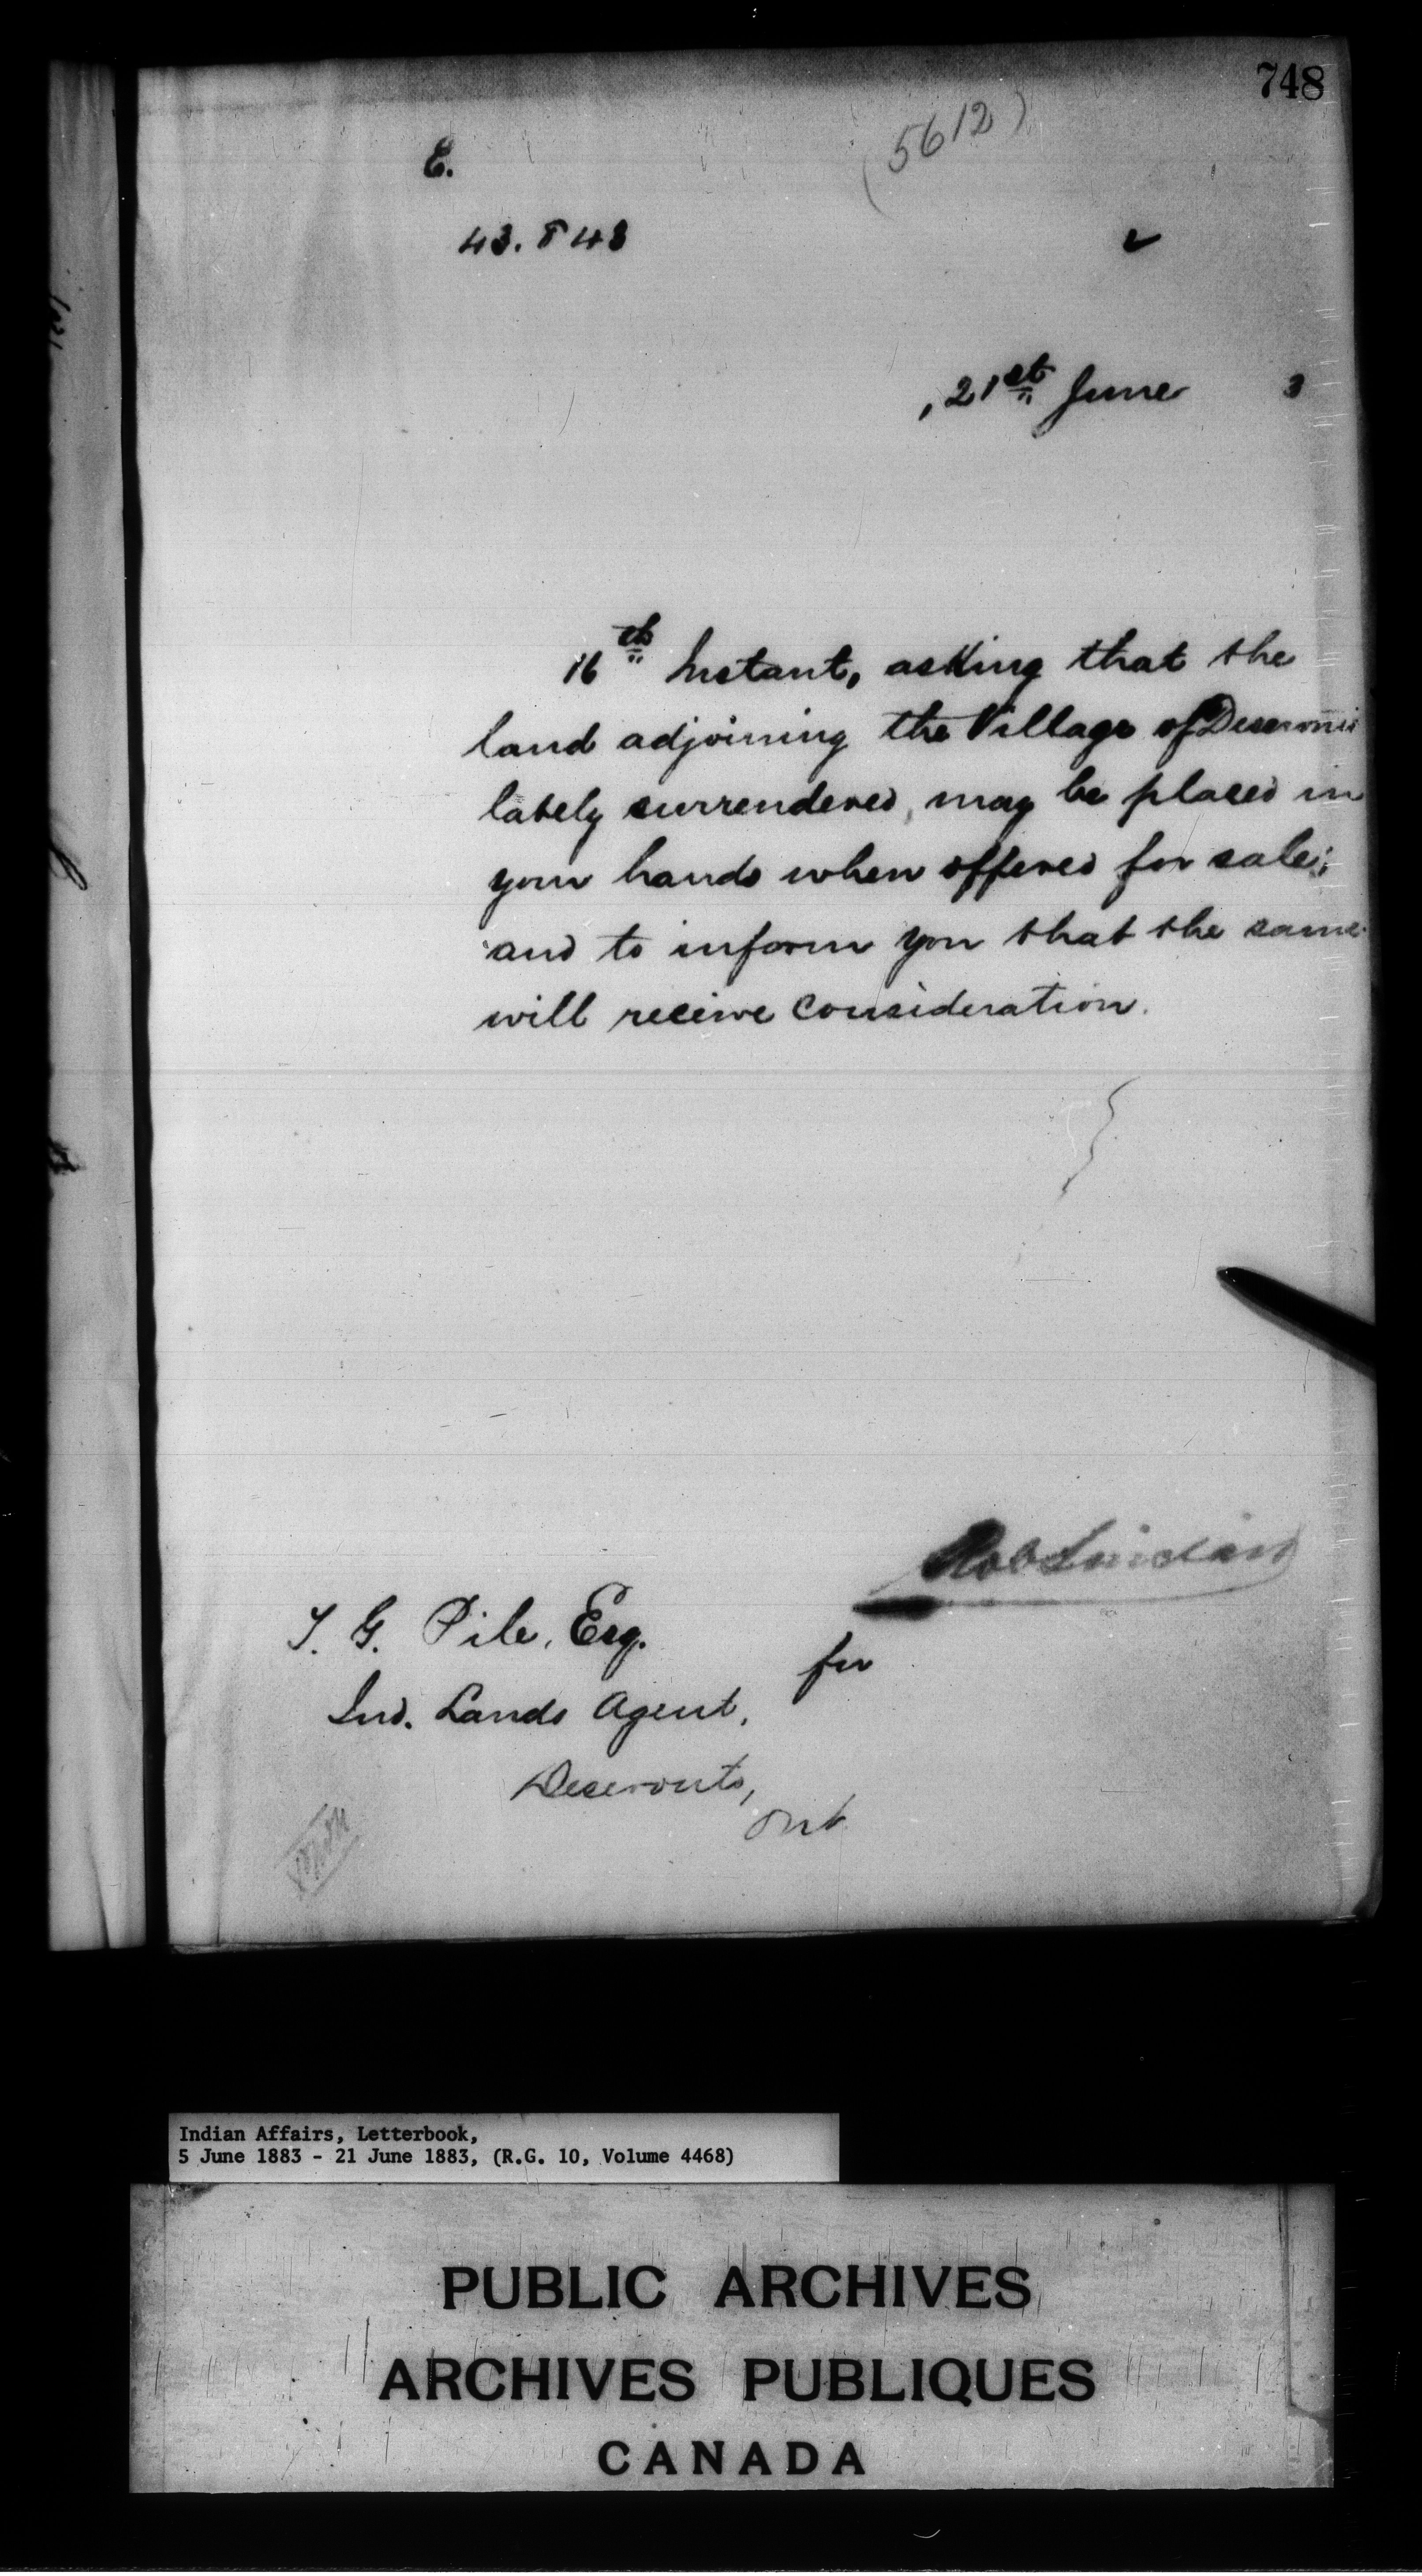 748
(5612)
E.
43.843
21st June 3
16th Instant, asking that the
land adjoining the Village of Deseronto
lately surrendered, may be placed in
your hands when offered for sale;
and to inform you that the same
will receive consideration.
Rob Sinclair
for
T. G. Pile, Esq.
Ind. Lands Agent,
Deseronto,
Ont
Indian Affairs, Letterbook,
5 June 1883 - 21 June 1883, (R.G. 10, Volume 4468)
PUBLIC ARCHIVES
ARCHIVES PUBLIQUES
CANADA